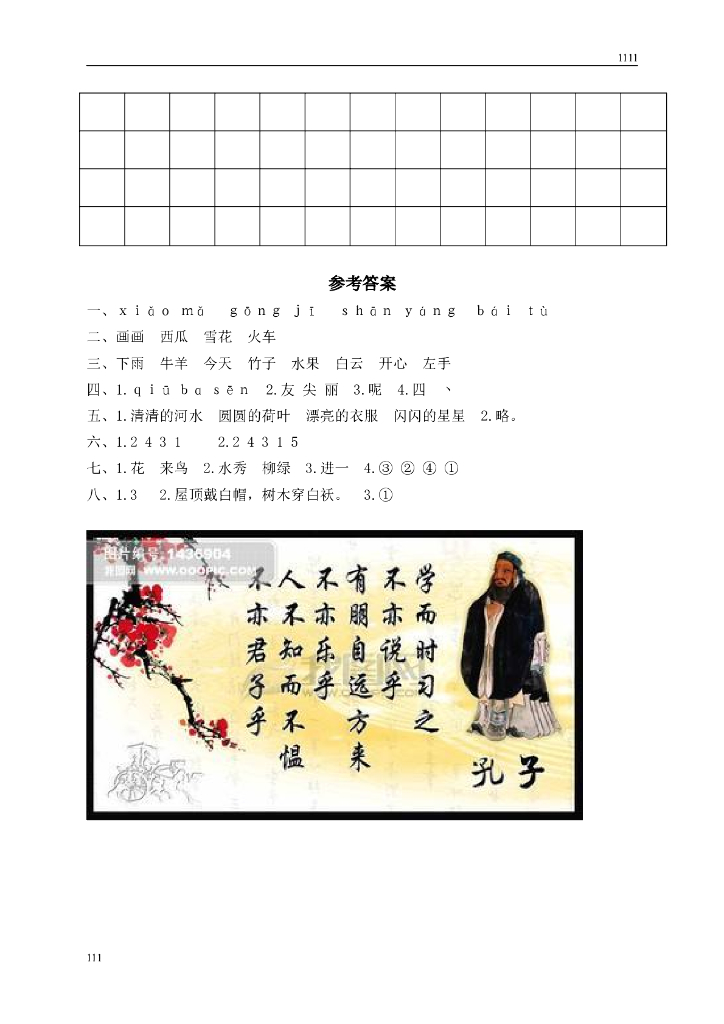 1111
参考答案
一、xiǎo mǎ gōng jī shān yáng bái tù
二、画画 西瓜 雪花 火车
三、下雨 牛羊 今天 竹子 水果 白云 开心 左手
四、1.qiū bɑ sēn 2.友 尖 丽 3.呢 4.四 丶
五、1.清清的河水 圆圆的荷叶 漂亮的衣服 闪闪的星星 2.略。
六、1.2 4 3 1 2.2 4 3 1 5
七、1.花 来鸟 2.水秀 柳绿 3.进一 4.③ ② ④ ①
八、1.3 2.屋顶戴白帽，树木穿白袄。 3.①
图片编号:1436904
我图网 www.ooopic.com
学而时习之
不亦说乎
有朋自远方来
不亦乐乎
人不知而不愠
不亦君子乎
孔子
111